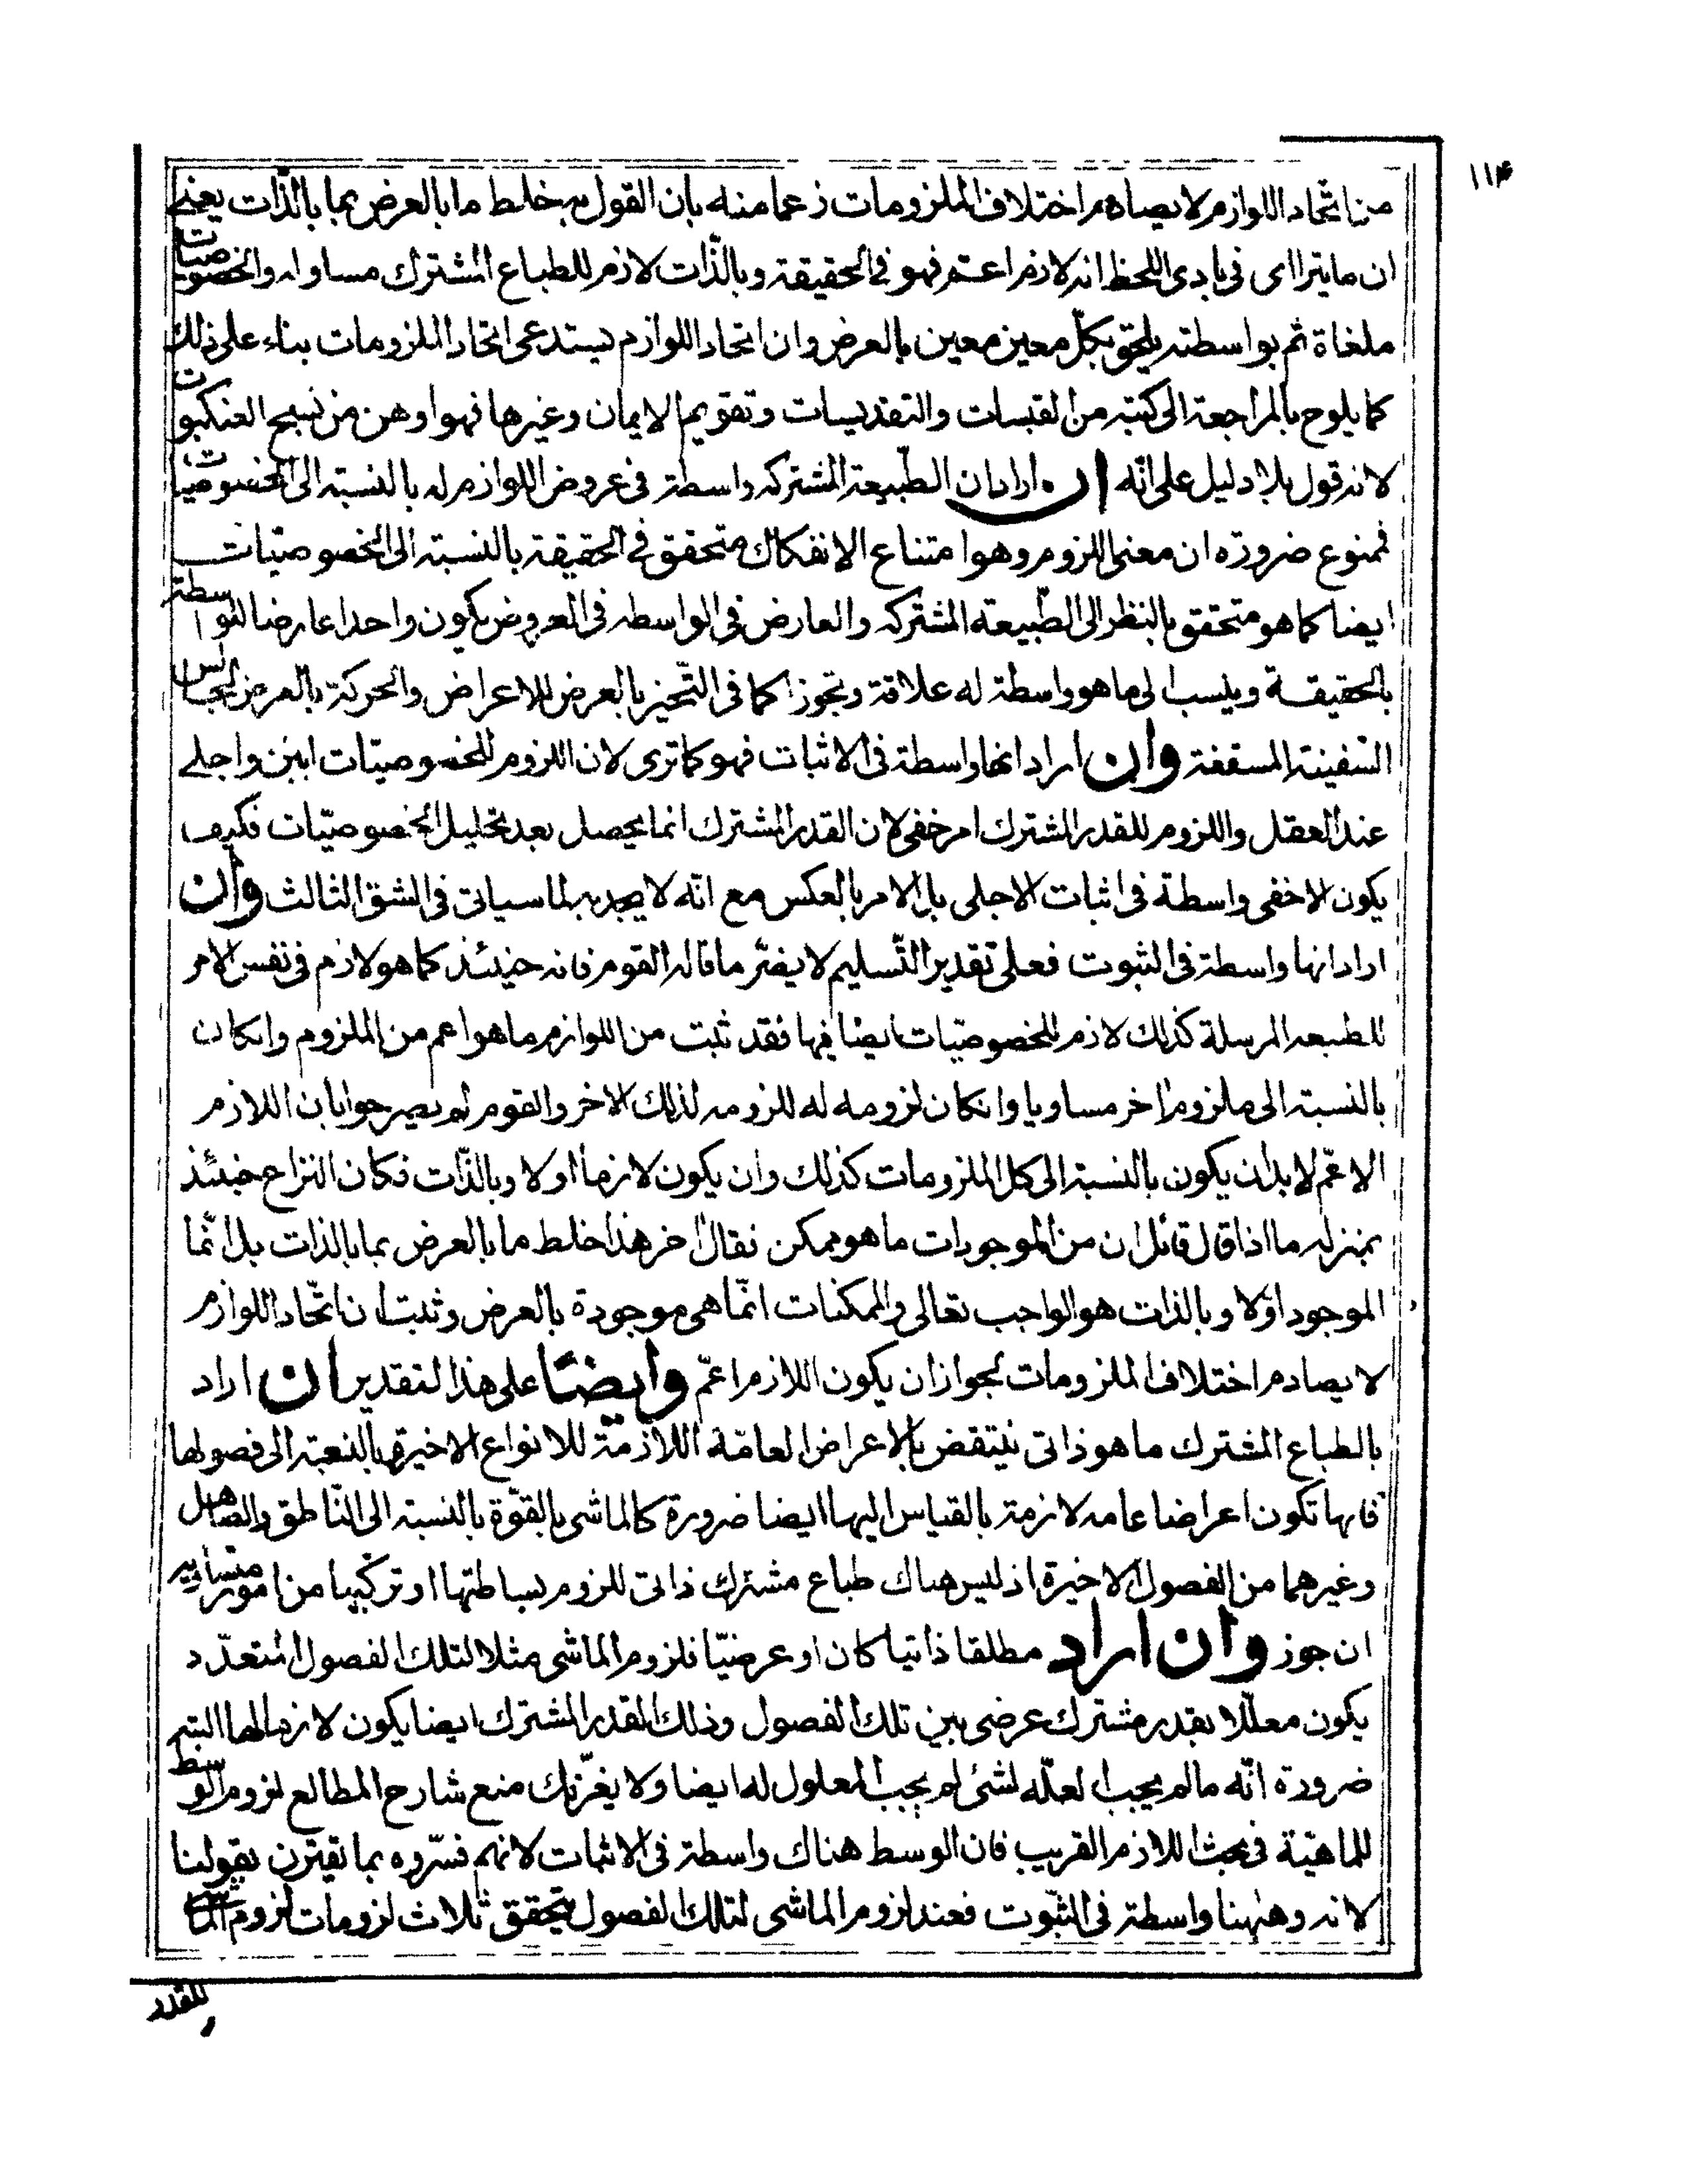 ١١۴
من اتّحاد اللوازم لا يصادم اختلاف الملزومات زعما منه بان القول به خلط ما بالعرض بما بالذّات يعنى
ان ما يترااى فى بادى اللحظ انه لازم اعم فهو فى الحقيقة وبالذّات لازم للطباع المشترك مساو له والخصوصيات
ملغاة ثم بواسطته يلحق بكلّ معين معين بالعرض وان اتحاد اللوازم يستدعى اتحاد الملزومات بناء على ذلك
كما يلوح بالمراجعة الى كتبه من القبسات والتقديسات وتقويم الايمان وغيرها فهو اوهن من نسج العنكبوت
لانه قول بلا دليل على انّه ان اراد ان الطّبيعة المشتركه واسطة فى عروض اللوازم له بالنسبة الى الخصوصيات
فممنوع ضرورة ان معنى اللزوم وهو امتناع الانفكاك متحقق فى الحقيقة بالنسبة الى الخصوصيّات
ايضا كما هو متحقق بالنظر الى الطّبيعة المشتركه والعارض فى الواسطه فى العروض يكون واحدا عارضا للواسطة
بالحقيقة وينسب الى ما هو واسطة له علاقة وتجوزا كما فى التّحيز بالعرض للاعراض والحركة بالعرض لجالس
السّفينة المسقفة وان اراد انها واسطة فى الاثبات فهو كما ترى لان اللزوم للخصوصيّات ابين واجلى
عند العقل واللزوم للقدر المشترك امر خفى لان القدر المشترك انما يحصل بعد تحليل الخصوصيّات فكيف
يكون الاخفى واسطة فى اثبات الاجلى بل الامر بالعكس مع انّه لا يجديه لما سياتى فى الشق الثالث وان
اراد انها واسطة فى الثبوت فعلى تقدير التّسليم لا يضرّ ما قاله القوم فانه حينئذ كما هو لازم فى نفس الامر
للطبيعه المرسلة كذلك لازم للخصوصيّات ايضا فيها فقد ثبت من اللوازم ما هو اعم من الملزوم وانكان
بالنسبة الى ملزوم اخر مساويا وانكان لزومه له للزومه لذلك الاخر والقوم لم يصرحوا بان اللازم
الاعّم لا بد ان يكون بالنسبة الى كل الملزومات كذلك وان يكون لازما اولا وبالذّات فكان النزاع حينئذ
بمنزله ما اذا قال قائل ان من الموجودات ما هو ممكن فقال اخر هذا خلط ما بالعرض بما بالذات بل انّما
الموجود اوّلا وبالذات هو الواجب تعالى والممكنات انّما هى موجودة بالعرض وثبت ان اتّحاد اللوازم
لا يصادم اختلاف الملزومات لجواز ان يكون اللازم اعمّ وايضًا على هذا التقدير ان اراد
بالطباع المشترك ما هو ذاتى ينتقض بالاعراض العامّة اللازمة للانواع الاخيرة بالنسبة الى فصولها
فانها تكون اعراضا عامه لازمة بالقياس اليها ايضا ضرورة كالماشى بالقوّة بالنسبة الى النّاطق والصّاهل
وغيرهما من الفصول الاخيرة اذ ليس هناك طباع مشترك ذاتى للزوم بساطتها او تركبها من امور متساوية
ان جوز وان اراد مطلقا ذاتيا كان او عرضيّا فلزوم الماشى مثلا لتلك الفصول المتعدّد
يكون معلّلا بقدر مشترك عرضى بين تلك الفصول وذلك القدر المشترك ايضا يكون لازما لها البتة
ضرورة انّه ما لم يجب العلّه لشئ لم يجب المعلول له ايضا ولا يغرّنك منع شارح المطالع لزوم الوسط
للماهيّة فى بحث اللازم القريب فان الوسط هناك واسطة فى الاثبات لانهم فسّروه بما تقترن بقولنا
لانه وههنا واسطة فى الثّبوت فعند لزوم الماشى لتلك الفصول يتحقق ثلاث لزومات لزوم
للقدر